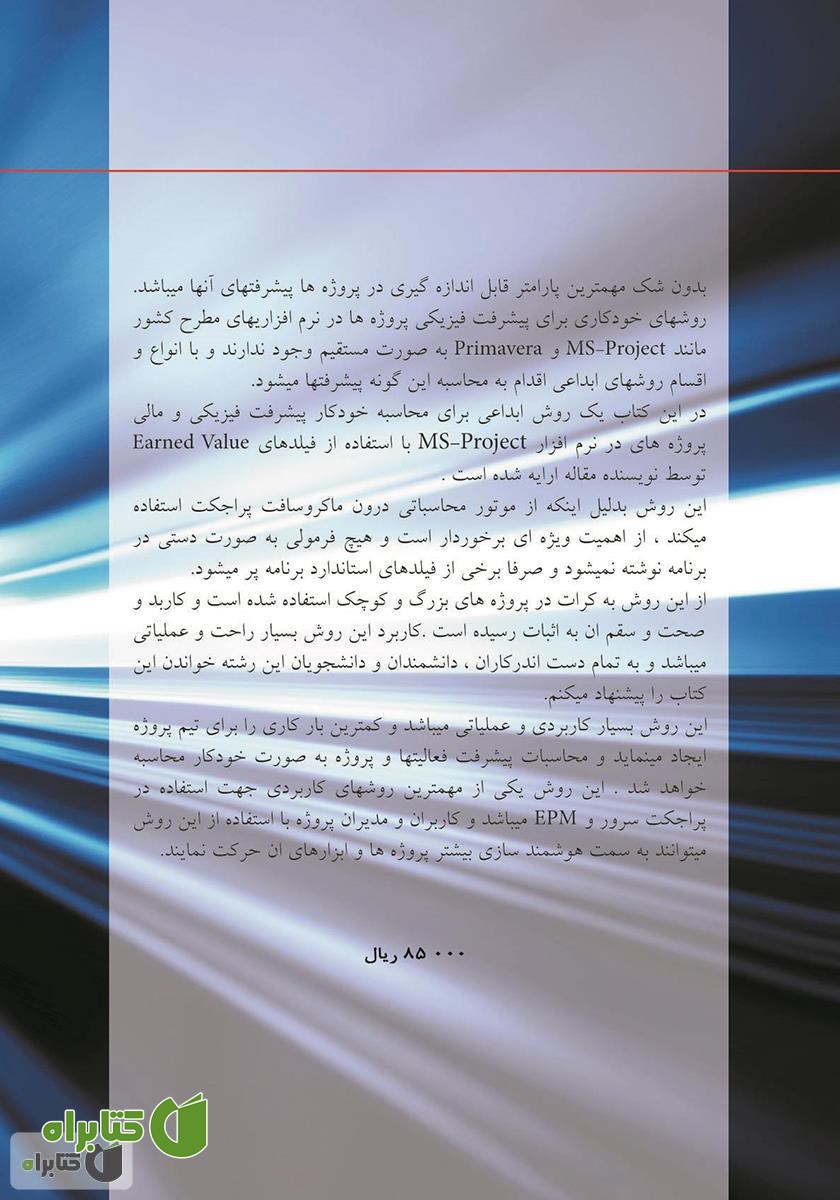 بدون شک مهمترین پارامتر قابل اندازه گیری در پروژه ها پیشرفتهای آنها میباشد.
روشهای خودکاری برای پیشرفت فیزیکی پروژه ها در نرم افزاریهای مطرح کشور
مانند MS-Project و Primavera به صورت مستقیم وجود ندارند و با انواع و
اقسام روشهای ابداعی اقدام به محاسبه این گونه پیشرفتها میشود.
در این کتاب یک روش ابداعی برای محاسبه خودکار پیشرفت فیزیکی و مالی
پروژه های در نرم افزار MS-Project با استفاده از فیلدهای Earned Value
توسط نویسنده مقاله ارایه شده است .
این روش بدلیل اینکه از موتور محاسباتی درون ماکروسافت پراجکت استفاده
میکند ، از اهمیت ویژه ای برخوردار است و هیچ فرمولی به صورت دستی در
برنامه نوشته نمیشود و صرفا برخی از فیلدهای استاندارد برنامه پر میشود.
از این روش به کرات در پروژه های بزرگ و کوچک استفاده شده است و کاربد و
صحت و سقم ان به اثبات رسیده است .کاربرد این روش بسیار راحت و عملیاتی
میباشد و به تمام دست اندرکاران ، دانشمندان و دانشجویان این رشته خواندن این
کتاب را پیشنهاد میکنم.
این روش بسیار کاربردی و عملیاتی میباشد و کمترین بار کاری را برای تیم پروژه
ایجاد مینماید و محاسبات پیشرفت فعالیتها و پروژه به صورت خودکار محاسبه
خواهد شد . این روش یکی از مهمترین روشهای کاربردی جهت استفاده در
پراجکت سرور و EPM میباشد و کاربران و مدیران پروژه با استفاده از این روش
میتوانند به سمت هوشمند سازی بیشتر پروژه ها و ابزارهای ان حرکت نمایند.
۸۵ ۰۰۰ ریال
کتابراه
کتابراه